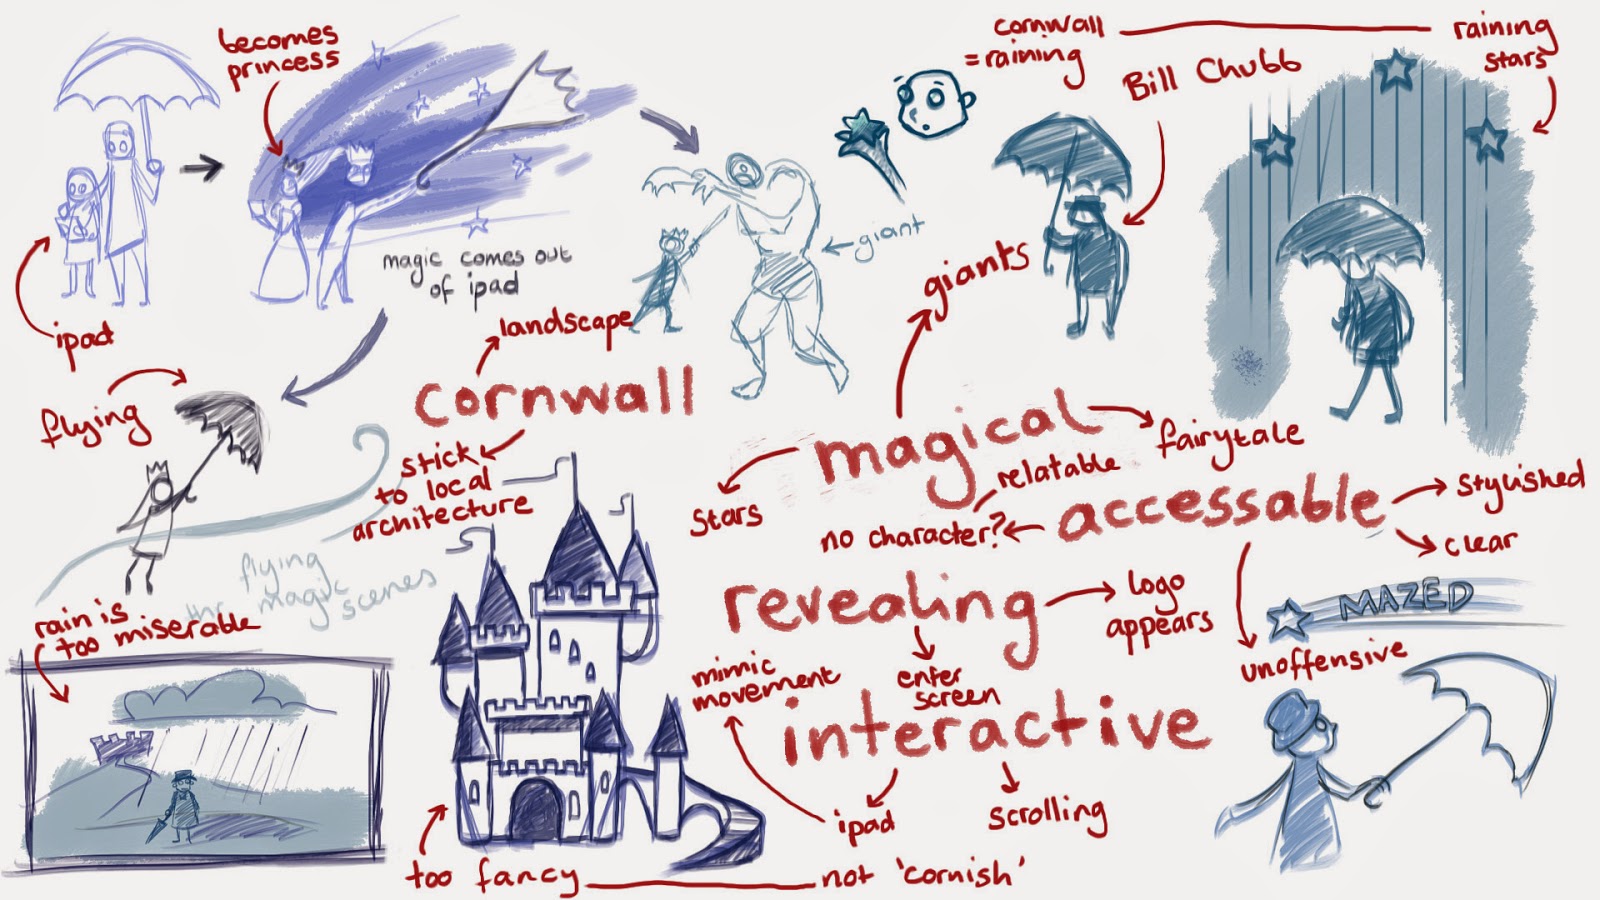 becomes
princess
cornwall
= raining
raining
stars
Bill Chubb
magic comes out
of ipad
giant
giants
ipad
landscape
flying
cornwall
stick
to local
architecture
magical
fairytale
relatable
stars
no character?
accessable
stylished
clear
flying
magic
scenes
rain is
too miserable
revealing
logo
appears
MAZED
unoffensive
mimic
movement
enter
screen
interactive
ipad
scrolling
too fancy
not 'cornish'